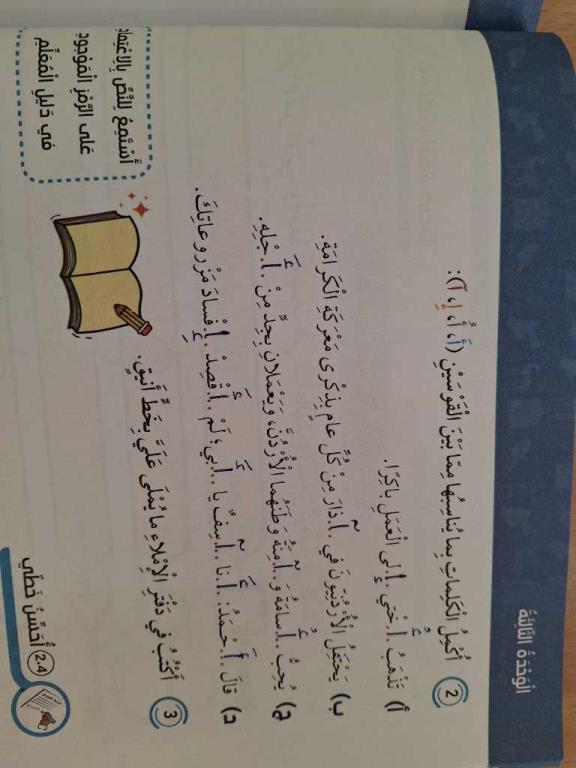 الْوَحْدَةُ الثّالِثَةُ
2 أُكْمِلُ الْكَلِماتِ بِما يُناسِبُها مِمّا بَيْنَ الْقَوْسَيْنِ (أَ، أُ، إِ، آ):
أ) تَذْهَبُ أُخْتي إِلى الْعَمَلِ باكِرًا.
ب) يَحْتَفِلُ الْأُرْدُنِيّونَ في آذارَ مِنْ كُلِّ عامٍ بِذِكْرى مَعْرَكَةِ الْكَرامَةِ.
ج) يُحِبُّ أُسامَةُ وَ آمِنَةُ وَطَنَهُما الْأُرْدُنَّ، وَيَعْمَلانِ بِجِدٍّ مِنْ أَجْلِهِ.
د) قالَ أَحْمَدُ: أَنا آسِفٌ يا أَبي؛ لَمْ أَقْصِدْ إِفْسادَ مَزْروعاتِكَ.
3 أَكْتُبُ في دَفْتَرِ الْإِمْلاءِ ما يُمْلى عَلَيَّ بِخَطٍّ أَنيقٍ.
أَسْتَمِعُ لِلنَّصِّ بِالِاعْتِمادِ
عَلى الرَّمْزِ الْمَوْجودِ
في دَليلِ الْمُعَلِّمِ
2.4 أُحَسِّنُ خَطّي